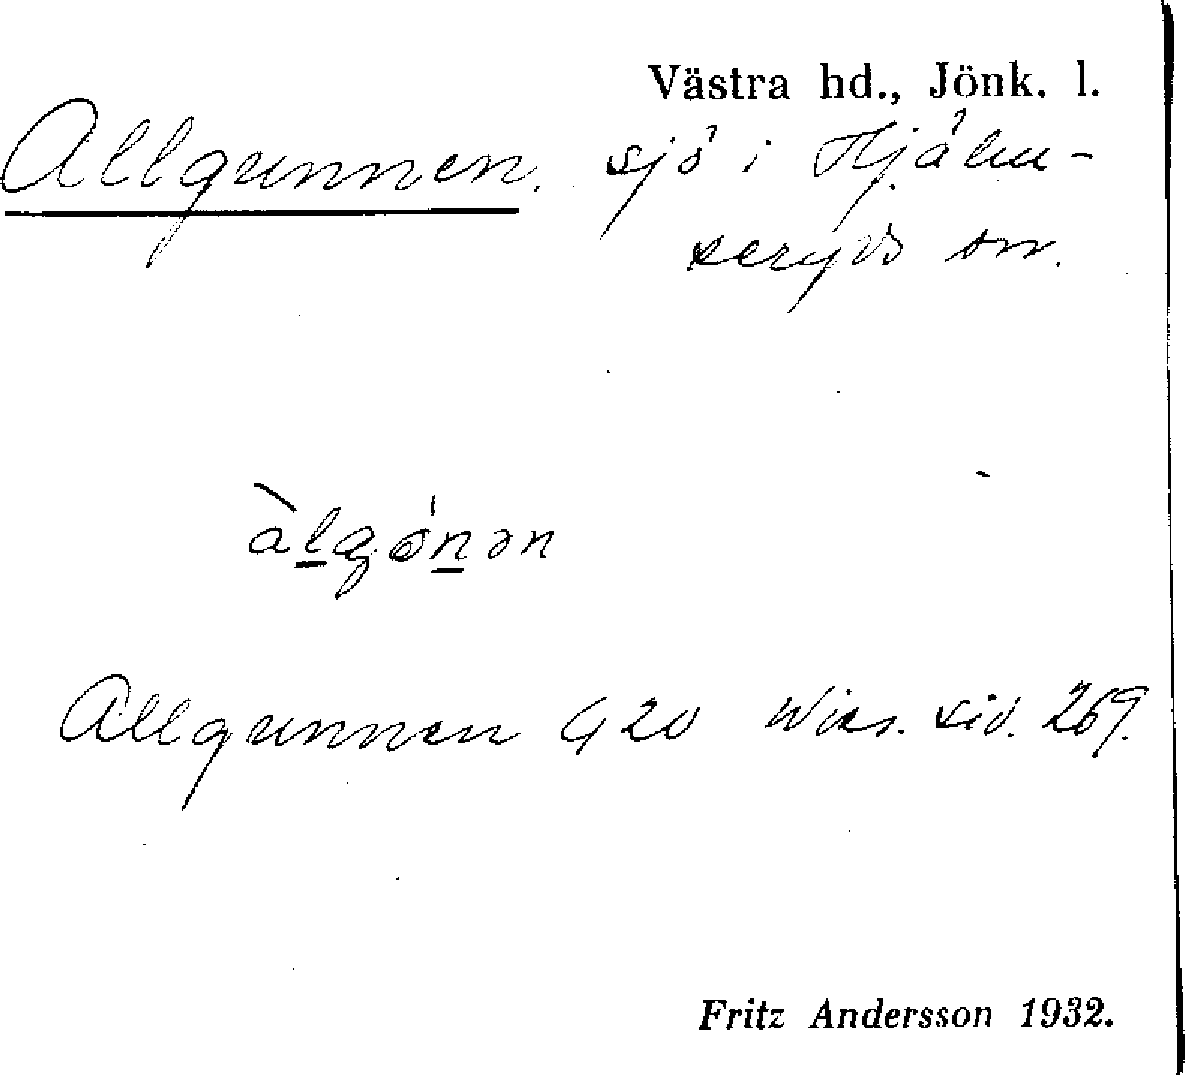 Västra hd., Jönk. l.
Allgunnen. sjö i Hjälm-
seryds sn.
àlgónən
Allgunnen G 20 Wies. sid. 269.
Fritz Andersson 1932.